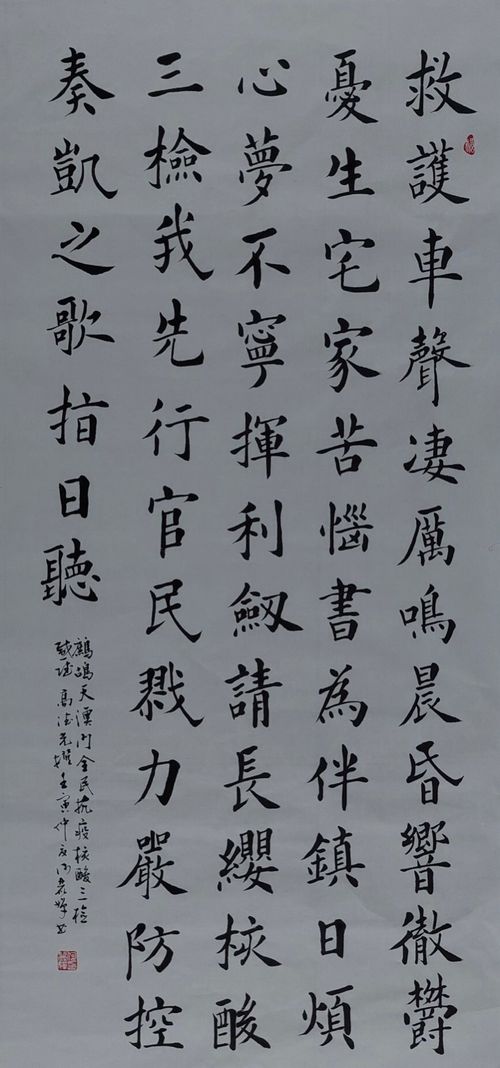 救護車聲凄厲鳴晨昏響徹欝
憂生宅家苦惱書為伴鎮日煩
心夢不寧揮利劔請長纓核酸
三檢我先行官民戮力嚴防控
奏凱之歌指日聽
鷓鴣天澳門全民抗疫核酸三檢
壬寅仲夏